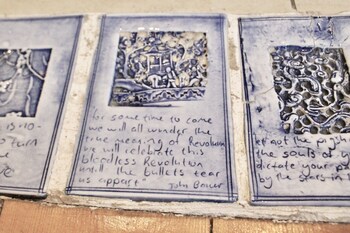 -15-10-
o Turn
e
"for some time to come
we will all wonder the
true meaning of Revolution
we will celebrate this
bloodless Revolution
until the bullets tear
us appart"
John Bower
et out the
the souls of y
dictate your p
by the stars in t